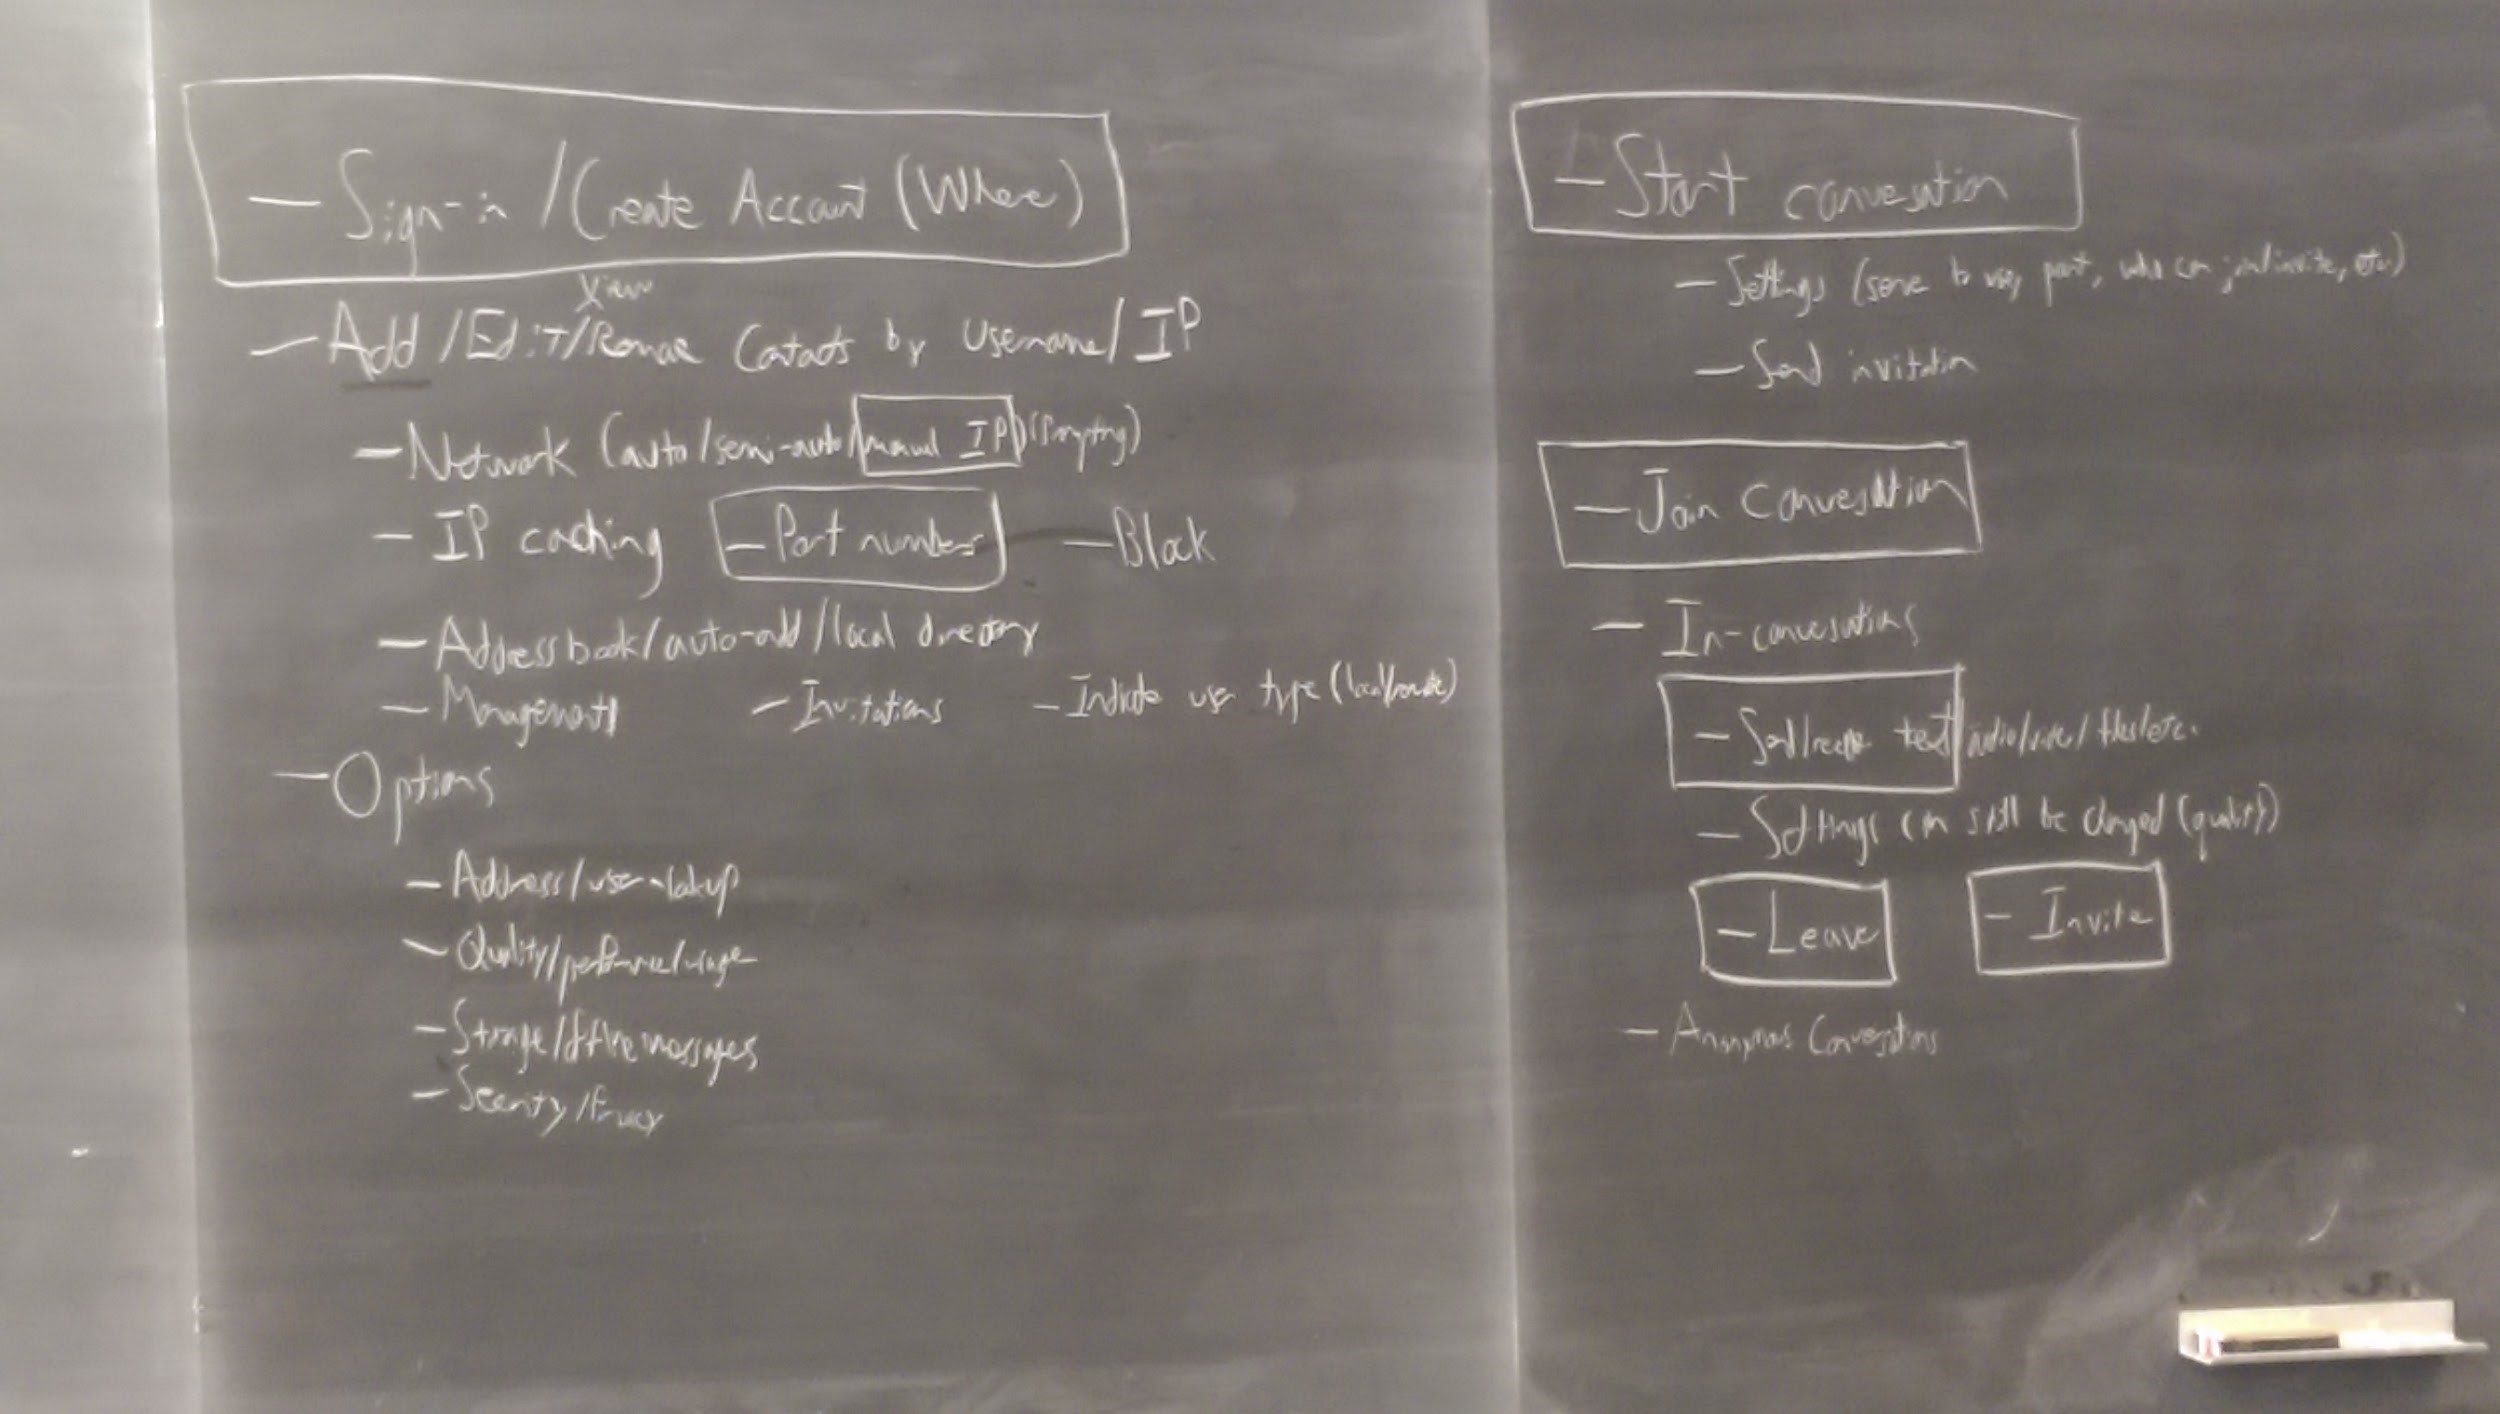 - Sign-in / Create Account (Where)
View
- Add / Edit / Remove Contacts by Username / IP
- Network (auto / semi-auto / manual IP)
- IP caching - Port numbers - Block
- Address book / auto-add / local directory
- Management - Invitations - Indicate user type (local/remote)
- Options
- Address / user-lookup
- Quality / performance / usage
- Storage / offline messages
- Security / Privacy
- Start conversation
- Settings (server to use, port, who can join/invite, etc)
- Send invitation
- Join Conversation
- In-conversations
- Send/receive text / audio / / files / etc.
- Settings can still be changed (quality)
- Leave - Invite
- Anonymous Conversations